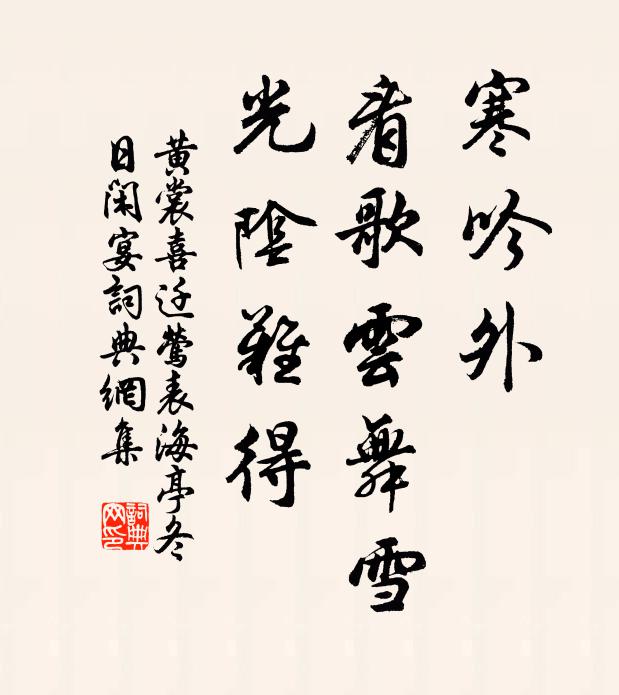 寒吟外
看歌雲舞雪
光陰難得
黃裳喜迁鶯表海亭冬
日閑宴詞典網集
詞典网印